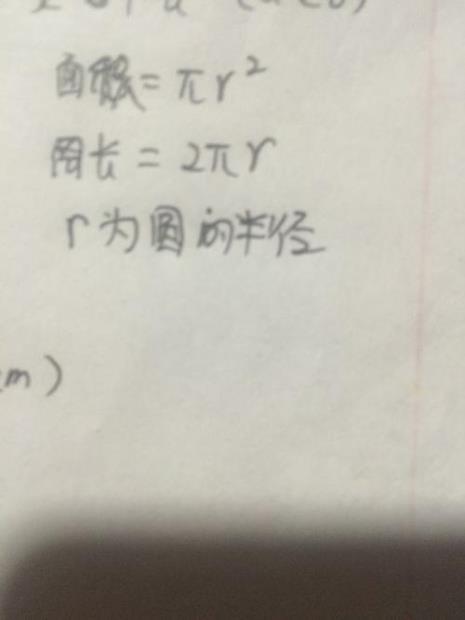 面积=πr²
周长=2πr
r为圆的半径
m)